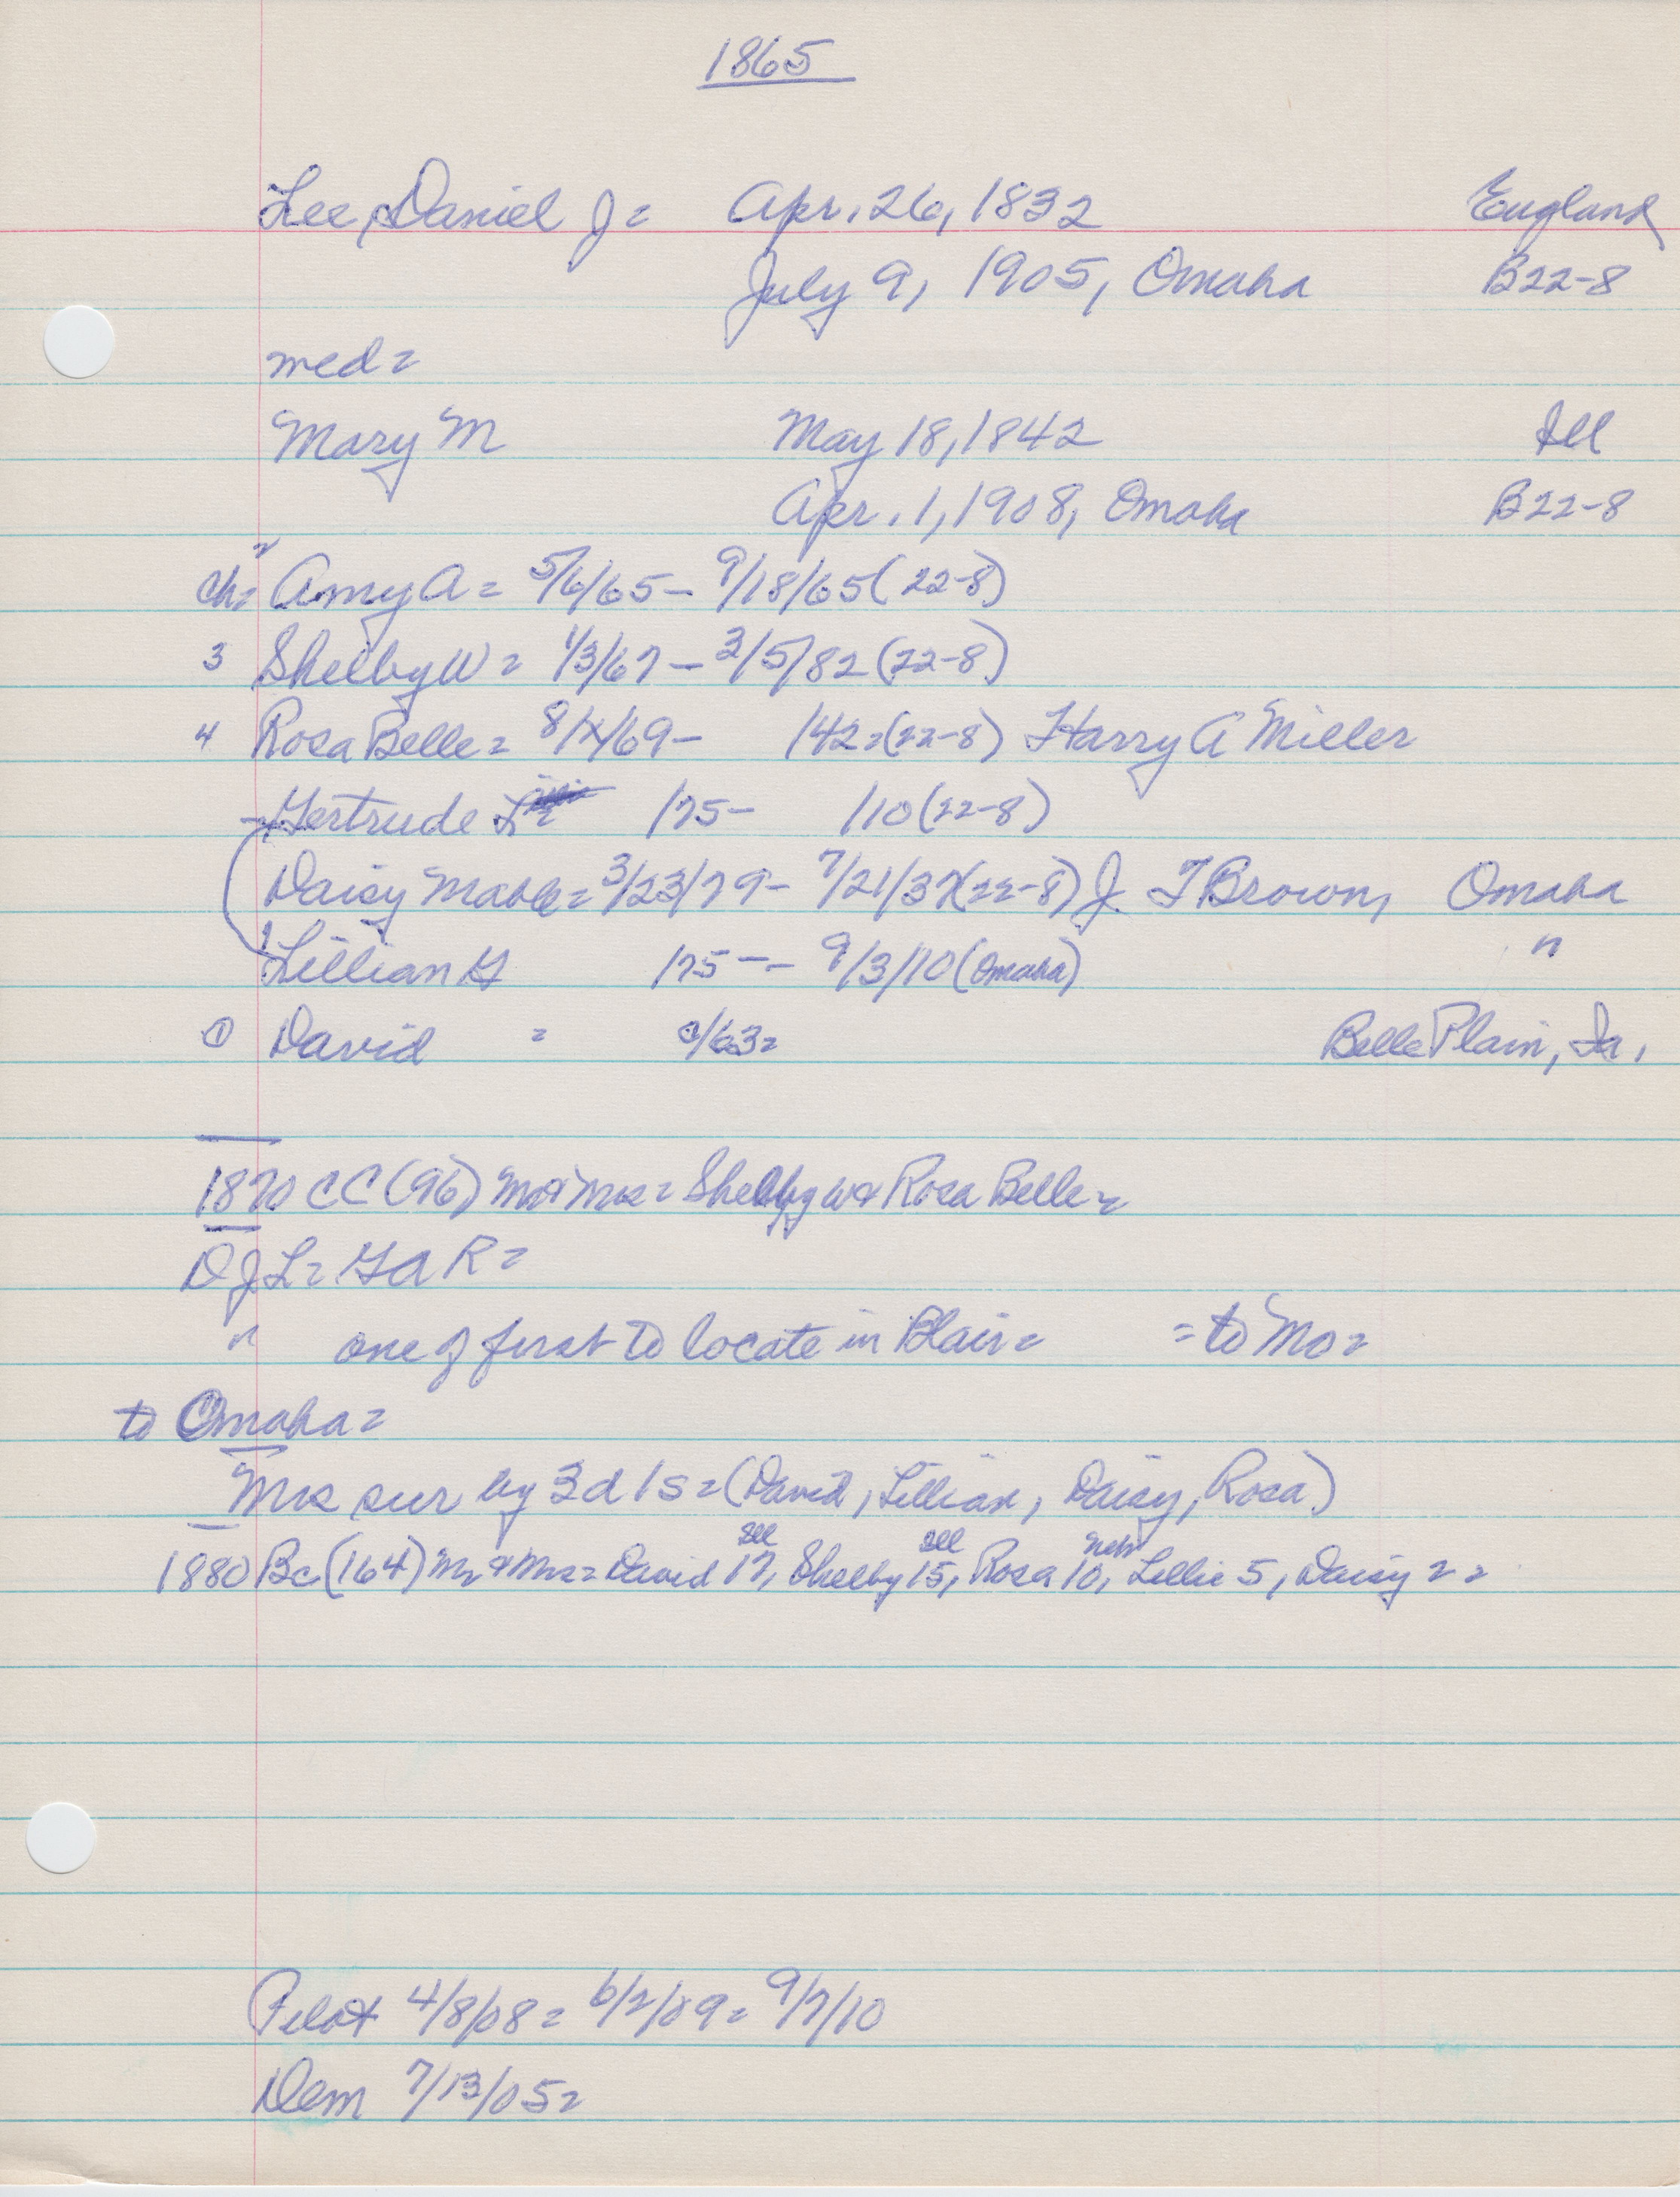 1865
Lee, Daniel J = Apr. 26, 1832 England
July 9, 1905, Omaha B22-8
med =
Mary M May 18, 1842 Ill
Apr. 1, 1908, Omaha B22-8
ch = 2 Amy A = 5/6/65 - 9/18/65 (22-8)
3 Shelby W = 1/3/67 - 3/5/82 (22-8)
4 Rosa Belle = 8/ /69 - 142 = (22-8) Harry A Miller
Gertrude L /75 - /10 (22-8)
Daisy Mable = 3/23/79 - 7/21/37 (22-8) J T Brown, Omaha
Lillian G /75 -- 9/3/10 (Omaha) "
1 David = /63 = Belle Plain, Ia.
1870 CC (96) Mr & Mrs = Shelby W & Rosa Belle =
D J L = G A R =
" one of first to locate in Blair = = to Mo =
to Omaha =
Mrs sur by 3 d 1 s = (David, Lillian, Daisy, Rosa)
1880 Bc (164) Mr & Mrs = David 17, Ill Shelby 15, Ill Rosa 10, Neb Lillie 5, Daisy 2 =
Pilot 4/8/08 = 6/2/09 = 9/7/10
Dem 7/13/05 =